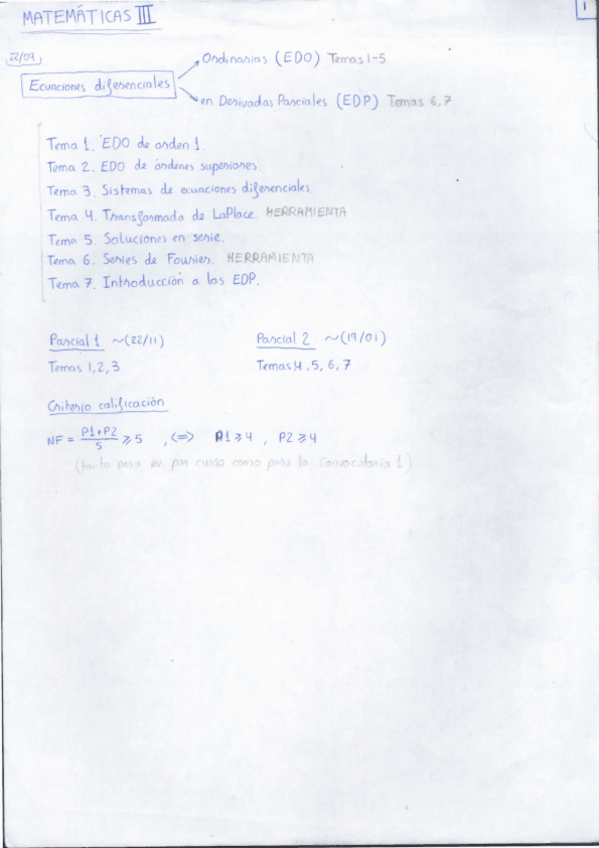 MATEMÁTICAS III
1
22/09
Ecuaciones diferenciales
Ordinarias (EDO) Temas 1-5
en Derivadas Parciales (EDP) Temas 6,7
Tema 1. EDO de orden 1.
Tema 2. EDO de órdenes superiores.
Tema 3. Sistemas de ecuaciones diferenciales.
Tema 4. Transformada de LaPlace. HERRAMIENTA
Tema 5. Soluciones en serie.
Tema 6. Series de Fourier. HERRAMIENTA
Tema 7. Introducción a las EDP.
Parcial 1 ~(22/11)
Temas 1,2,3
Parcial 2 ~(19/01)
Temas 4,5,6,7
Criterio calificación
NF = P1+P2/5 ≥ 5 , (=> P1 ≥ 4 , P2 ≥ 4
(tanto para ev. por curso como para la Convocatoria 1)